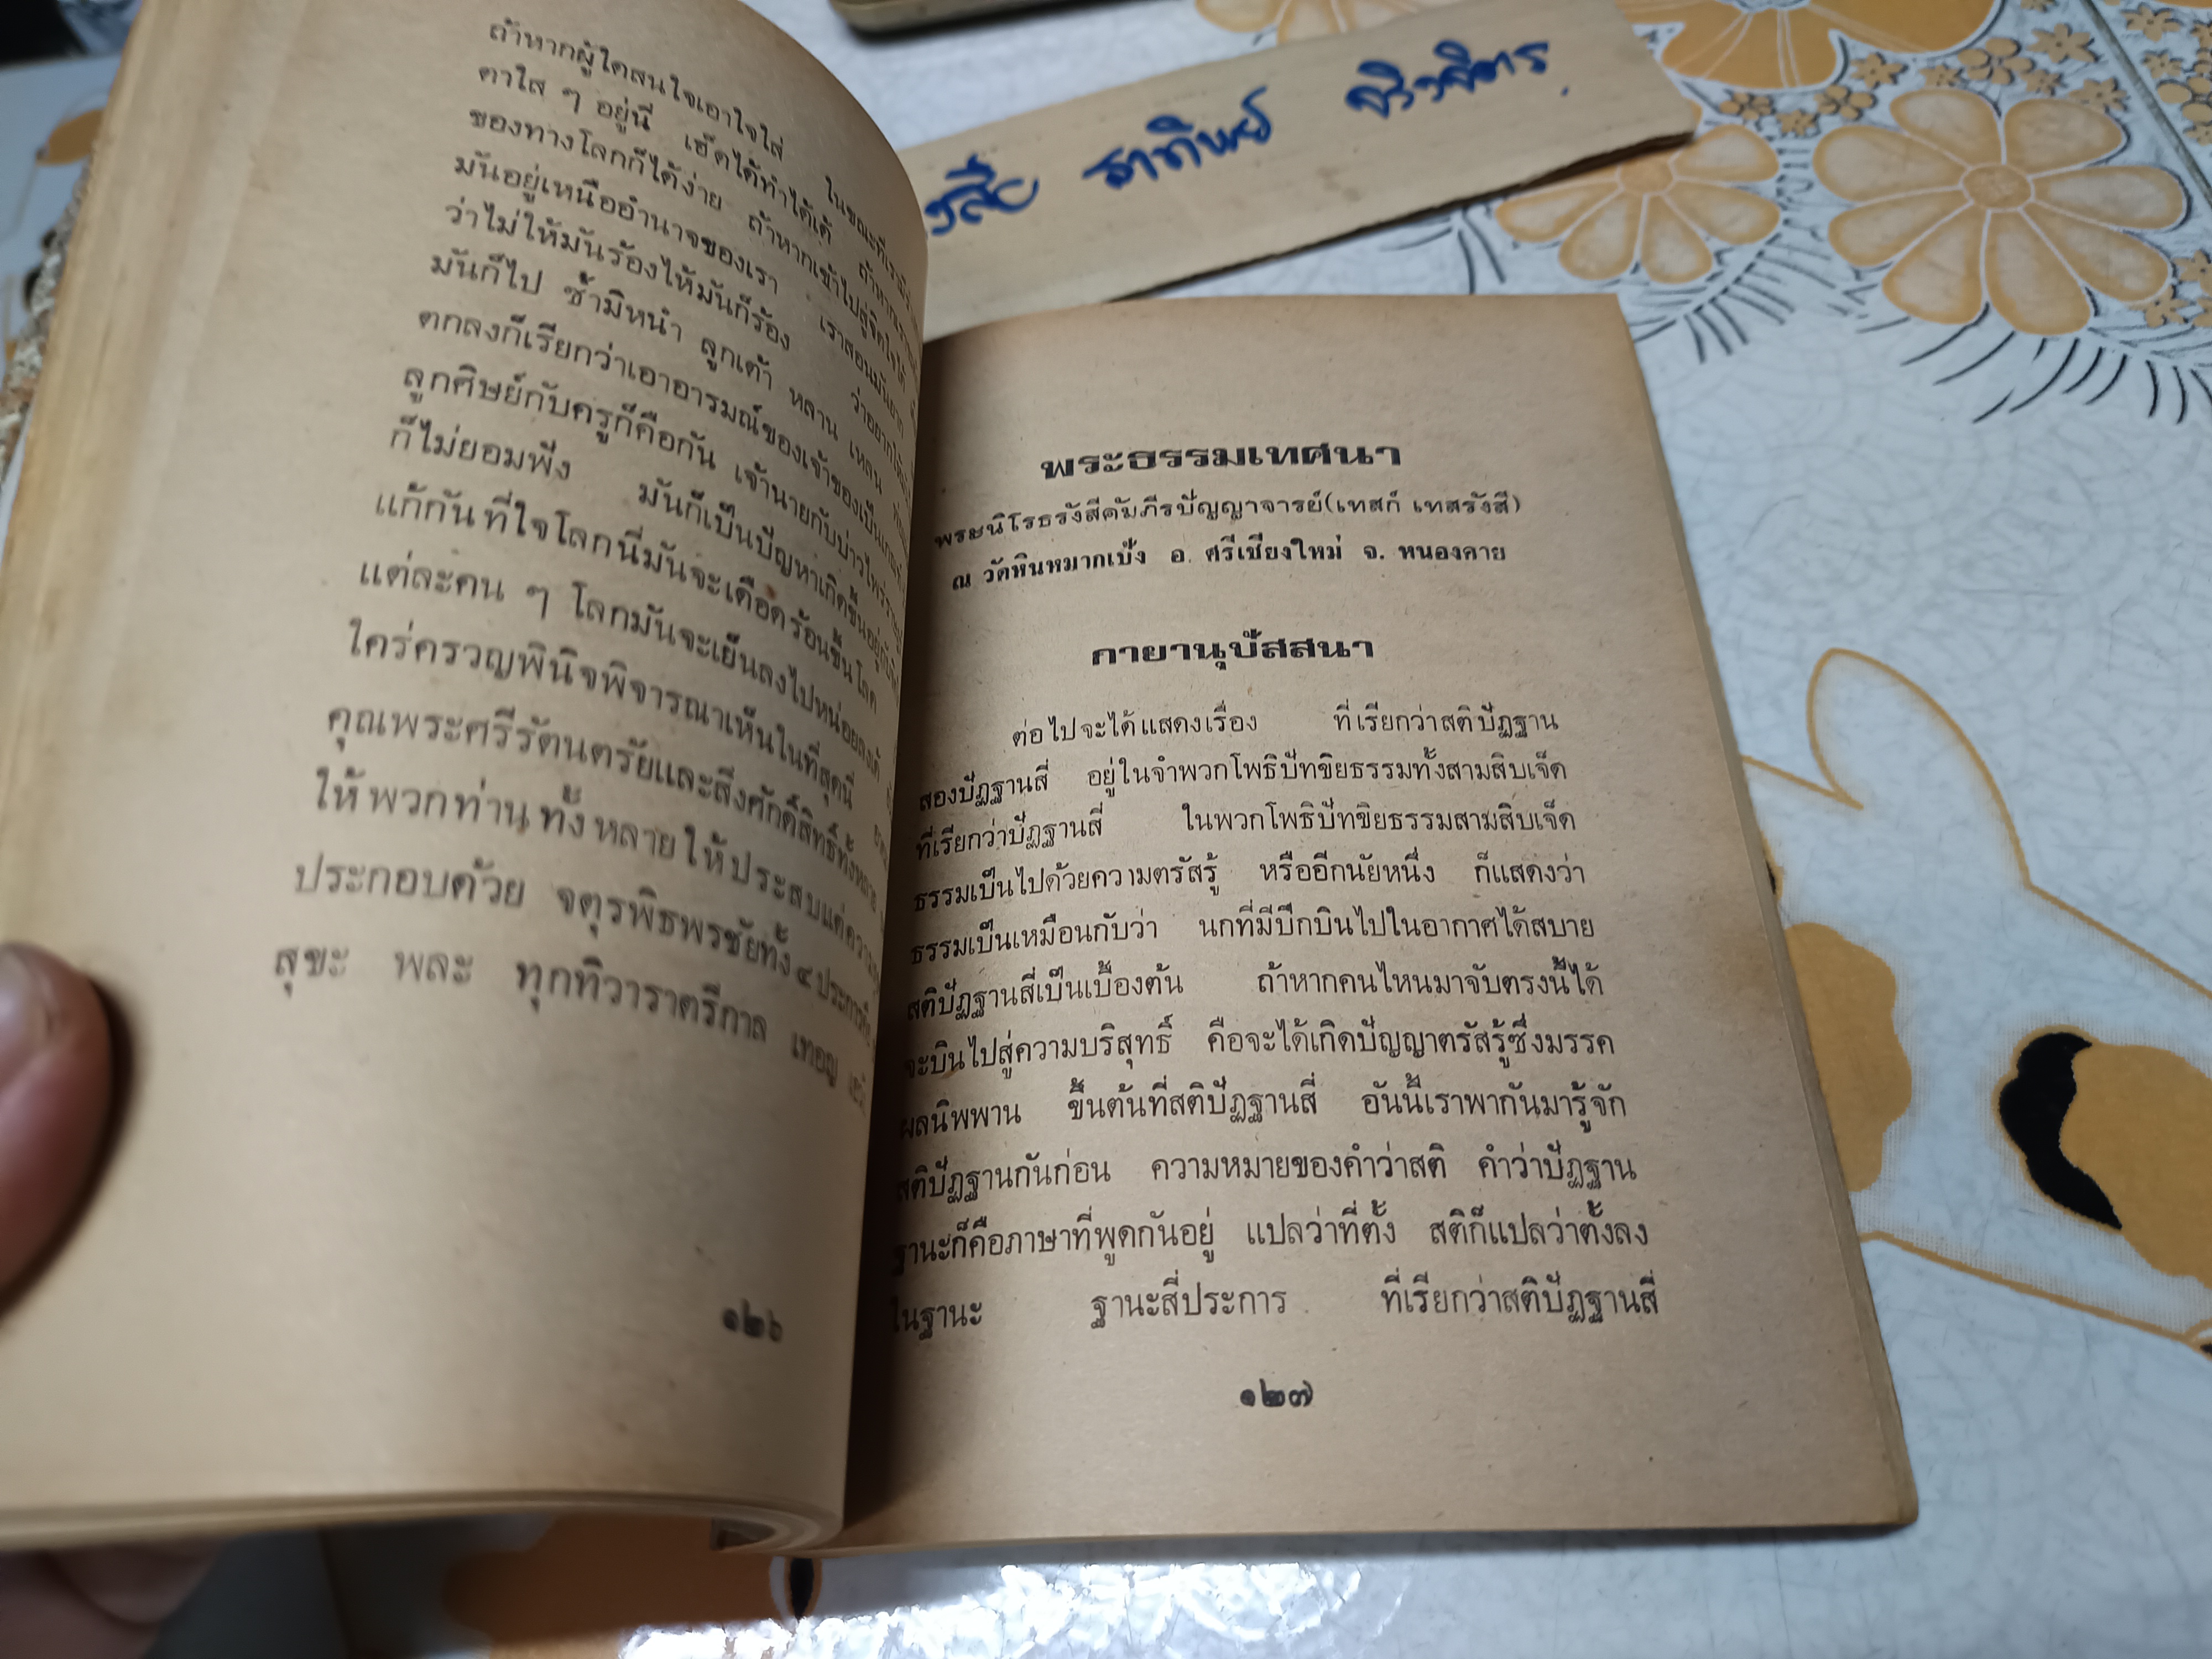 ถ้าหากผู้ใดสนใจเอาใจใส่
ตาใส ๆ อยู่นี่ เฮ็ดได้ทำได้เด้
ของทางโลกก็ได้ง่าย ถ้าหากเข้าไปสู่จิตใจได้
มันอยู่เหนืออำนาจของเรา เราสอนมันยาก
ว่าไม่ให้มันร้องไห้มันก็ร้อง
มันก็ไป ซ้ำมิหนำ ลูกเต้า หลาน เหลน
ตกลงก็เรียกว่าเอาอารมณ์ของเจ้าของเป็นเกณฑ์
ลูกศิษย์กับครูก็คือกัน เจ้านายกับบ่าวไพร่
ก็ไม่ยอมฟัง มันก็เป็นปัญหาเกิดขึ้นอยู่
แก้กันที่ใจโลกนี่มันจะเดือดร้อนขึ้นโลด
แต่ละคน ๆ โลกมันจะเย็นลงไปหน่อย
ใคร่ครวญพินิจพิจารณาเห็นในที่สุดนี้
คุณพระศรีรัตนตรัยและสิ่งศักดิ์สิทธิ์ทั้งหลาย
ให้พวกท่านทั้งหลายให้ประสบแต่ความ
ประกอบด้วย จตุรพิธพรชัยทั้ง ๔ ประการ
สุขะ พละ ทุกทิวาราตรีกาล เทอญ
๑๒๖
ธาทิพย์
พระธรรมเทศนา
พระนิโรธรังสีคัมภีรปัญญาจารย์(เทสก์ เทสรังสี)
ณ วัดหินหมากเป้ง อ. ศรีเชียงใหม่ จ. หนองคาย
กายานุปัสสนา
ต่อไปจะได้แสดงเรื่อง ที่เรียกว่าสติปัฏฐาน
สองปัฏฐานสี่ อยู่ในจำพวกโพธิปักขิยธรรมทั้งสามสิบเจ็ด
ที่เรียกว่าปัฏฐานสี่ ในพวกโพธิปักขิยธรรมสามสิบเจ็ด
ธรรมเป็นไปด้วยความตรัสรู้ หรืออีกนัยหนึ่ง ก็แสดงว่า
ธรรมเป็นเหมือนกับว่า นกที่มีปีกบินไปในอากาศได้สบาย
สติปัฏฐานสี่เป็นเบื้องต้น ถ้าหากคนไหนมาจับตรงนี้ได้
จะบินไปสู่ความบริสุทธิ์ คือจะได้เกิดปัญญาตรัสรู้ซึ่งมรรค
ผลนิพพาน ขึ้นต้นที่สติปัฏฐานสี่ อันนี้เราพากันมารู้จัก
สติปัฏฐานกันก่อน ความหมายของคำว่าสติ คำว่าปัฏฐาน
ฐานะก็คือภาษาที่พูดกันอยู่ แปลว่าที่ตั้ง สติก็แปลว่าตั้งลง
ในฐานะ ฐานะสี่ประการ ที่เรียกว่าสติปัฏฐานสี่
๑๒๗